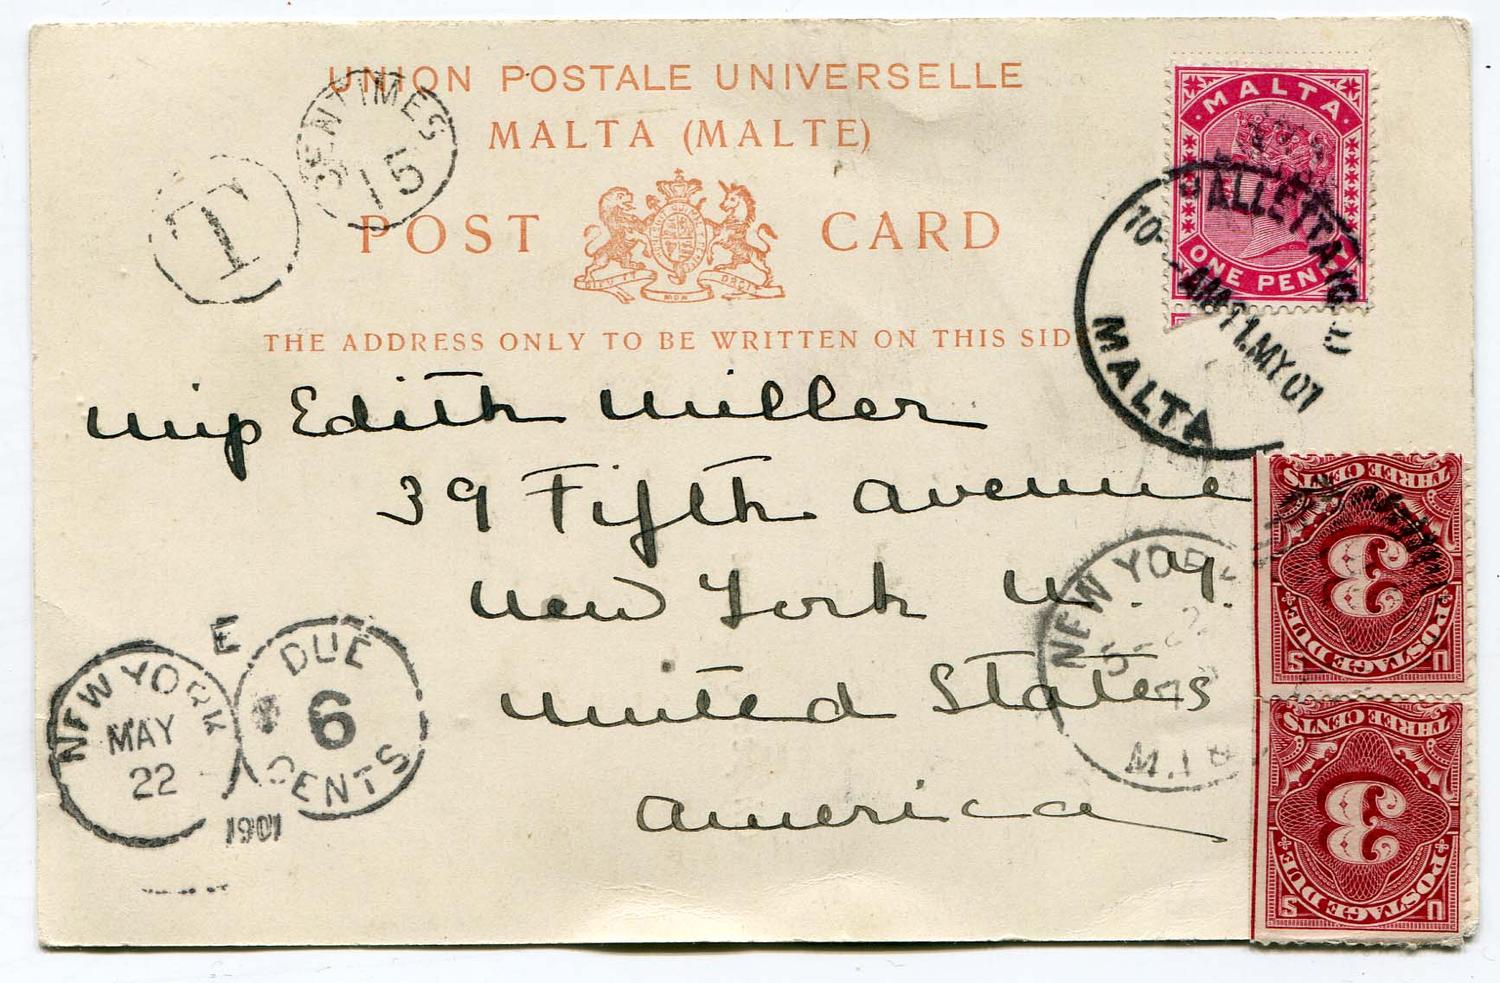 UNION POSTALE UNIVERSELLE
MALTA (MALTE)
POST CARD
DIEU ET MON DROIT
THE ADDRESS ONLY TO BE WRITTEN ON THIS SIDE
CENTIMES
15
T
MALTA
ONE PENNY
VALLETTA (G.P.O.)
10-AM 11.MY 01
MALTA
Miss Edith Miller
39 Fifth Avenue
New York N.Y.
United States
America
NEW YORK
MAY
22
1901
E
DUE
6
CENTS
NEW YORK
THREE CENTS
3
POSTAGE DUE
U S
THREE CENTS
3
POSTAGE DUE
U S